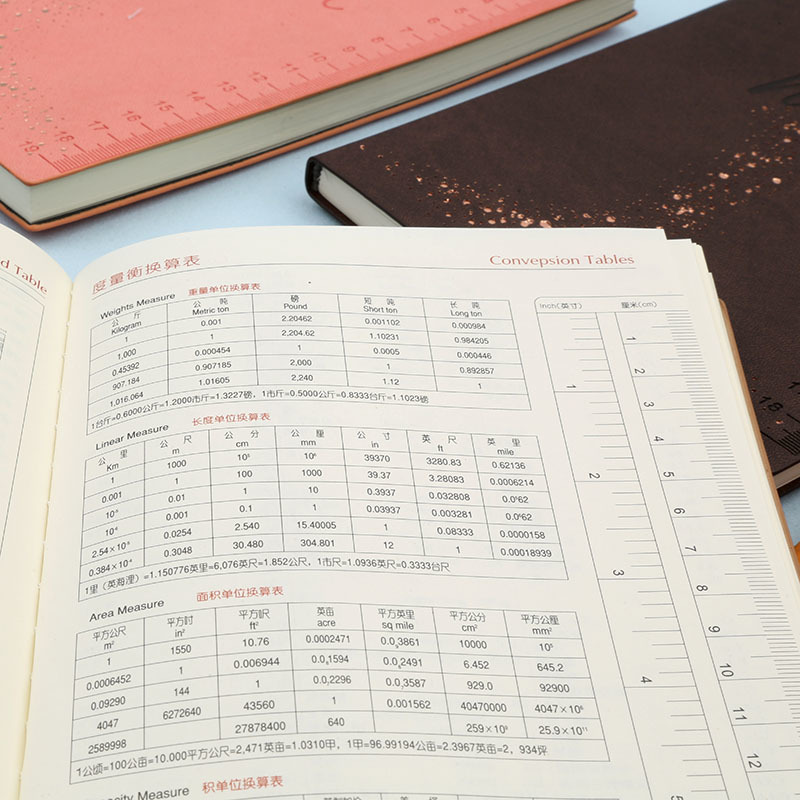 d Table
度量衡换算表
Convepsion Tables
Weights Measure 重量单位换算表
公斤 Kilogram 公吨 Metric ton 磅 Pound 短吨 Short ton 长吨 Long ton
1 0.001 2.20462 0.001102 0.000984
1,000 1 2,204.62 1.10231 0.984205
0.45392 0.000454 1 0.0005 0.000446
907.184 0.907185 2,000 1 0.892857
1,016.064 1.01605 2,240 1.12 1
1台斤=0.6000公斤=1.2000市斤=1.3227磅，1市斤=0.5000公斤=0.8333台斤=1.1023磅
Linear Measure 长度单位换算表
公里 Km 公尺 m 公分 cm 公厘 mm 公寸 in 英尺 ft 英里 mile
1 1000 10⁵ 10⁶ 39370 3280.83 0.62136
0.001 1 100 1000 39.37 3.28083 0.0006214
10⁻⁵ 0.01 1 10 0.3937 0.032808 0.0⁵62
10⁻⁶ 0.001 0.1 1 0.03937 0.003281 0.0⁶62
2.54×10⁻⁵ 0.0254 2.540 15.40005 1 0.08333 0.0000158
0.384×10⁻⁴ 0.3048 30.480 304.801 12 1 0.00018939
1里（英海浬）=1.150776英里=6,076英尺=1.852公尺，1市尺=1.0936英尺=0.3333台尺
Area Measure 面积单位换算表
平方公尺 m² 平方吋 in² 平方呎 ft² 英亩 acre 平方英里 sq mile 平方公分 cm² 平方公厘 mm²
1 1550 10.76 0.0002471 0.0₃3861 10000 10⁶
0.0006452 1 0.006944 0.0₆1594 0.0₆2491 6.452 645.2
0.09290 144 1 0.0₄2296 0.0₇3587 929.0 92900
4047 6272640 43560 1 0.001562 40470000 4047×10⁶
2589998 27878400 640 259×10⁹ 25.9×10¹¹
1公顷=100公亩=10.000平方公尺=2,471英亩=1.0310甲，1甲=96.99194公亩=2.3967英亩=2，934坪
Measure 积单位换算表
Inch(英寸) 厘米(cm)
1 2 3 4 5
1 2 3 4 5 6 7 8 9 10 11 12
19 18 17 16 15 14 13 12 11 10 9 8 7 6 5
18